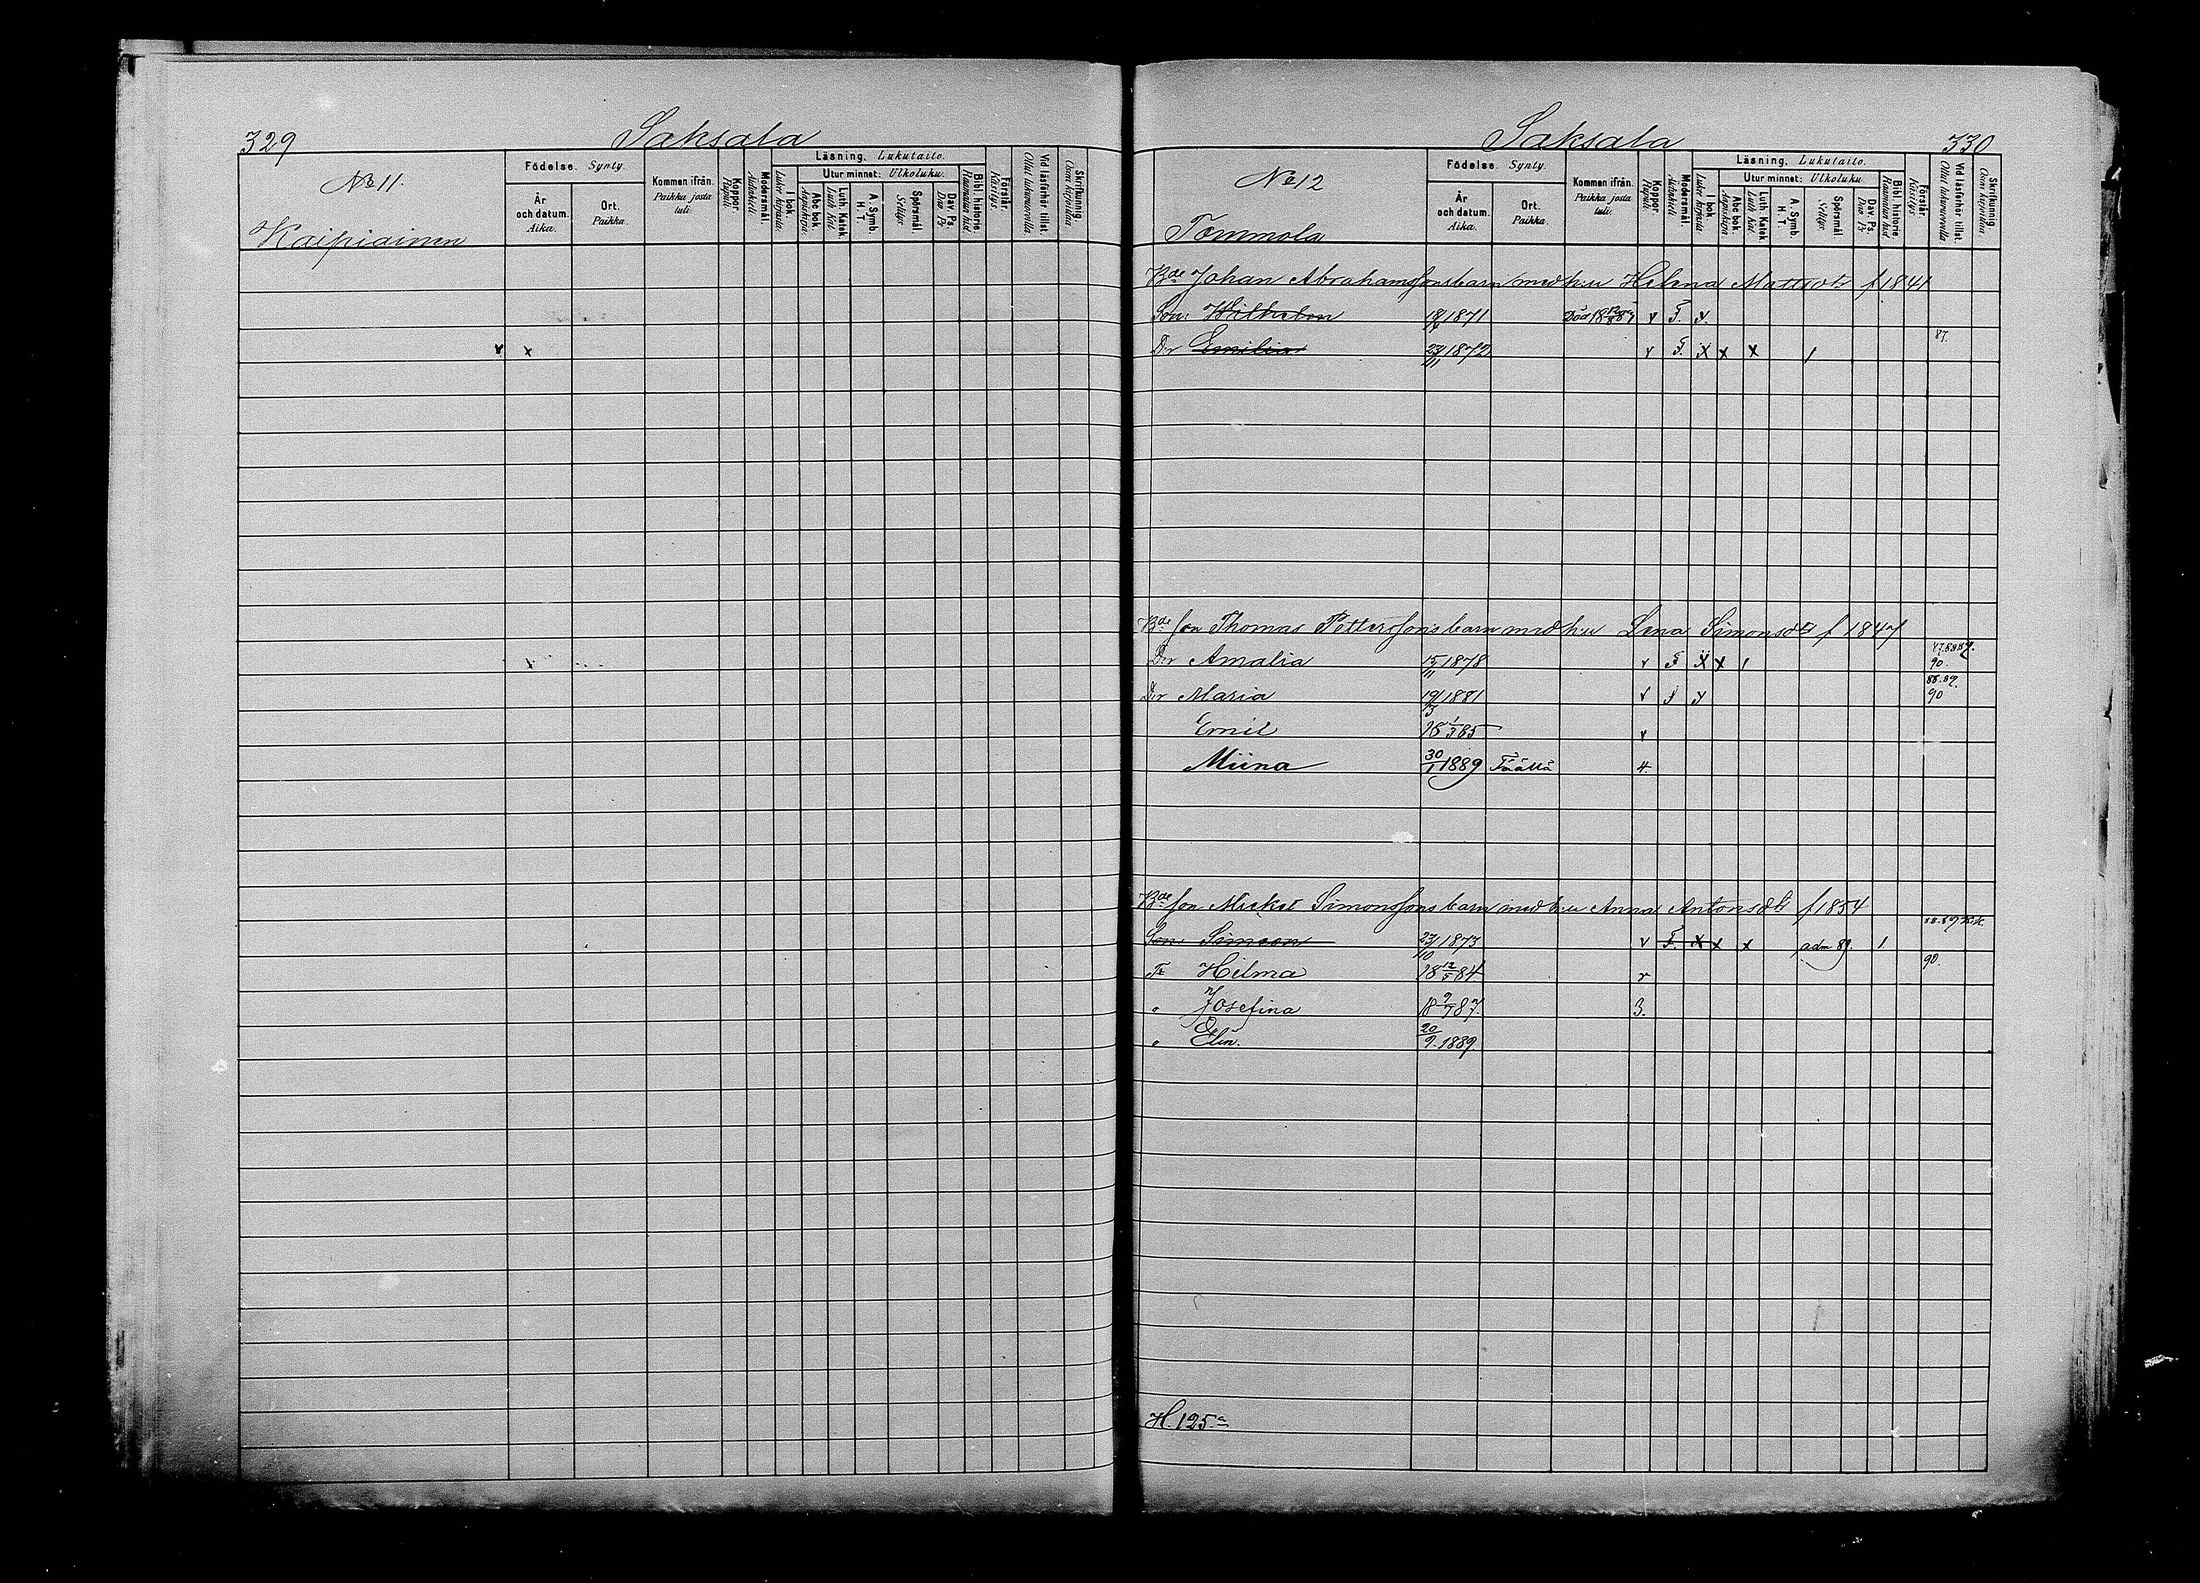 329 Saksala
No 11.
Kaipiainen
Födelse. Synty.
År och datum. Aika.
Ort. Paikka.
Kommen ifrån. Paikka josta tuli.
Koppor. Rupuli
Modersmål. Äidinkieli
Läsning. Lukutaito.
I bok. Luku kirjasta.
Utur minnet: Ulkoluku.
Abc bok. Aapiskirja.
Luth. Katek. Luth. Kat.
A. Symb. H. T.
Spörsmål. Selitys.
Dav. Ps. Daw. Ps.
Bibl. historie. Raamatun hist
Förstår. Käsitys.
Vid läsförhör tillst. Ollut lukukuvuilla.
Skrifkunnig. Osaa kirjoittaa.
v x
Saksala 330
No 12
Tommola
Födelse. Synty.
År och datum. Aika.
Ort. Paikka.
Kommen ifrån. Paikka josta tuli.
Koppor. Rupuli
Modersmål. Äidinkieli
Läsning. Lukutaito.
I bok. Luku kirjasta
Utur minnet: Ulkoluku.
Abc bok. Aapiskirja
Luth. Katek. Luth. Kat
A. Symb. H. T.
Spörsmål. Selitys.
Dav. Ps. Daw. Ps
Bibl. historie. Raamatun hist
Förstår. Käsitys
Vid läsförhör tillst. Ollut lukukuvuilla
Skrifkunnig. Osaa kirjoittaa.
Bde Johan Abrahamssons barn med hu Helena Mattsdtr f 1841
Son: Wilhelm 1871 Död v F. v.
Dr Emilia 23/11 1872 v F. x x x / 87.
Bde son Thomas Petterssons barn med hu Lena Simonsdtr f 1847
Dr Amalia 15/11 1878 v F x x / 90.
Dr Maria 19/3 1881 v 88.89. 90
Emil 18 1/3 85 v
Miina 30/1 1889 Täällä 4.
Bde son Mickel Simonssons barn med hu Anna Antonsdtr f 1854
Son Simeon 23/10 1873 v F. x x x adm 89. 1.
Tr Hilma 18 12/5 84 v 90.
" Josefina 18 87. 3.
" Elin. 20/9. 1889.
H. 125.